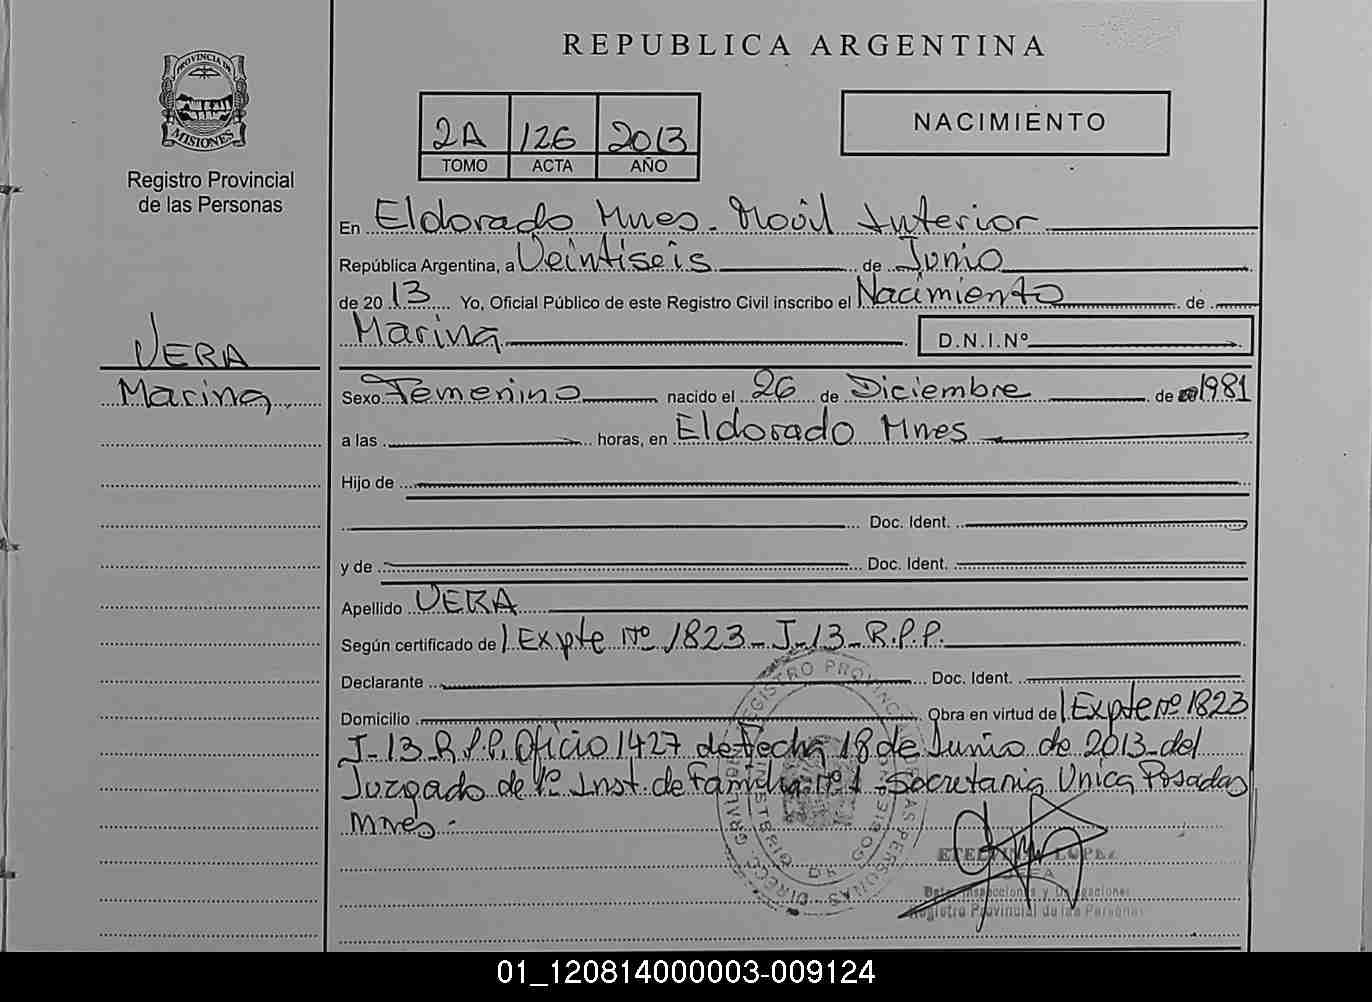 REPUBLICA ARGENTINA
PROVINCIA DE
MISIONES
Registro Provincial
de las Personas
2A 126 2013
TOMO ACTA AÑO
NACIMIENTO
En Eldorado Mnes. Movil Interior
República Argentina, a Veintiseis de Junio
de 2013 Yo, Oficial Público de este Registro Civil inscribo el Nacimiento de
Marina D.N.I.Nº
VERA
Marina
Sexo Femenino nacido el 26 de Diciembre de 1981
a las horas, en Eldorado Mnes
Hijo de
Doc. Ident.
y de Doc. Ident.
Apellido VERA
Según certificado de Expte Nº 1823-J-13-R.P.P.
Declarante Doc. Ident.
Domicilio Obra en virtud de Expte Nº 1823
J-13-R.P.P. Oficio 1427 de fecha 18 de Junio de 2013-del
Juzgado de 1º Inst. de Familia Nº 1 - Secretaria Unica Posadas
Mnes.-
ETELVINA LOPEZ
Dpto. Inspecciones y Delegaciones
Registro Provincial de las Personas
01_120814000003-009124